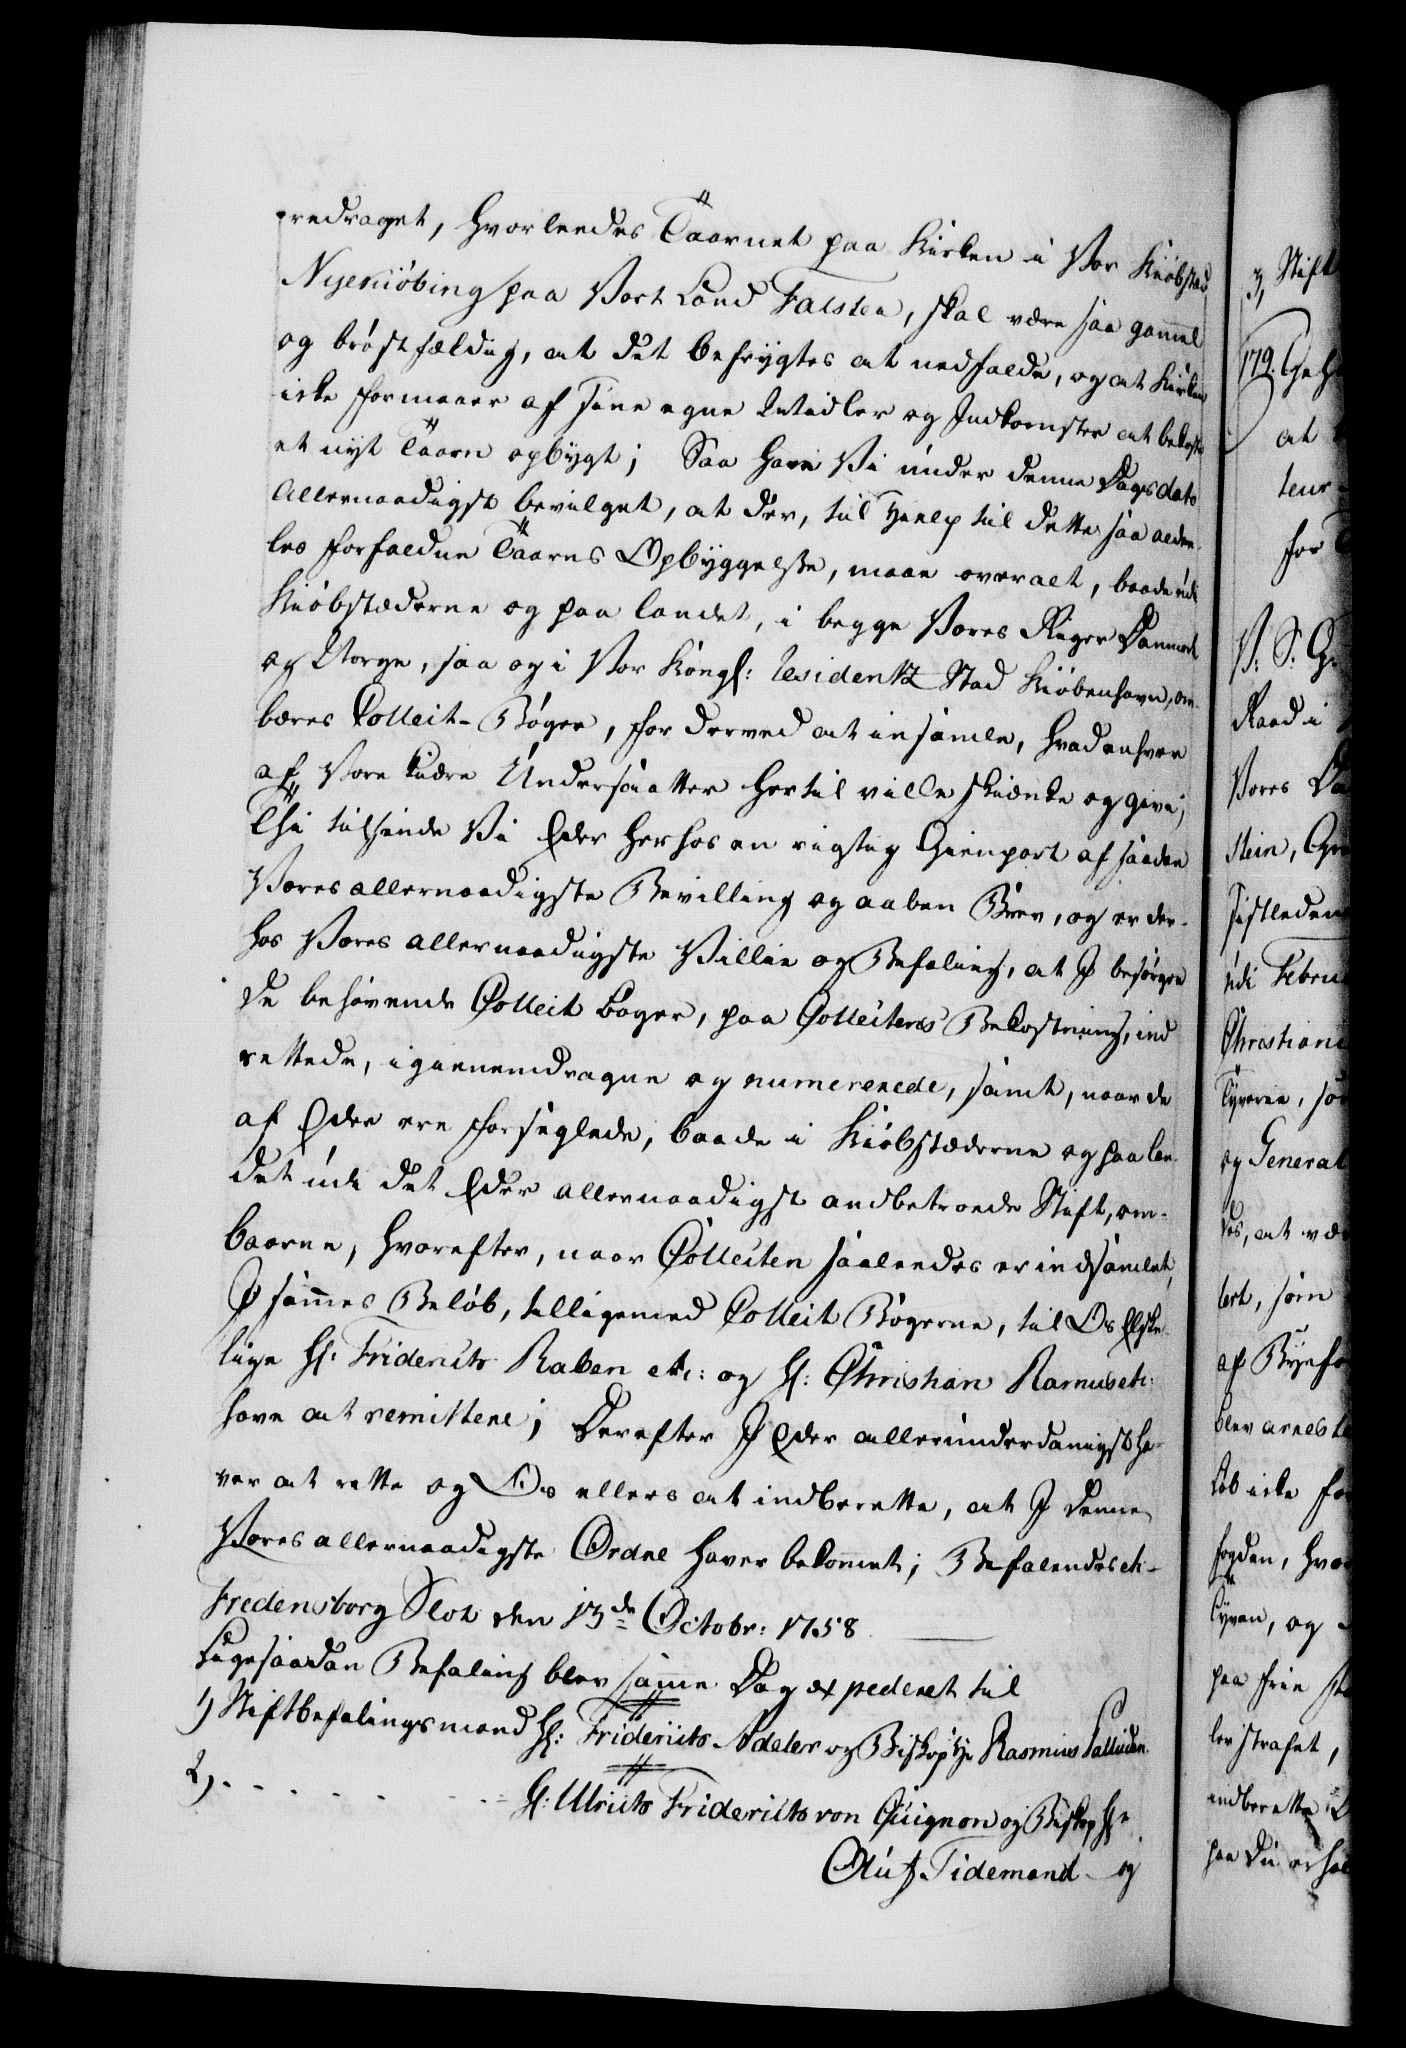 predraget, hvorleedes Taarnet paa Kirken i Vor Kiøbstad
Nyekiøbing paa Vort Land Falster, skal være saa gammel
og brøstfældig, at det befrygtes at nedfalde, og at Kirken
icke formaaer af sine egne Midler og Indkomster at bekoste
et nyt Taarn opbygt; Saa have Vi under denne Dags dato
Allernaadigst bevilget, at der, til Hielp til dette saa alde-
les forfaldne Taarns Opbyggelse, maae overalt, baade udi
Kiøbstæderne og paa landet, i begge Vores Riger Danmark
og Norge, saa og i Vor Kongl: Residentz Stad Kiøbenhavn, om-
bæres Collect-Bøger, for derved at insamle, hvad enhver
af Vore kiære Undersaatter hertil ville skiænke og give;
Thi tilsende Vi Eder herhos en rigtig Gienpart af saadan
Vores allernaadigste Bevilling og aaben Brev, og er der-
hos Vores allernaadigste Villie og Befaling, at I besørger
de behøvende Collect bøger, paa Collectens Bekostning, ind
rettede, igiennemdragne og numererede, samt, naar de
af Eder ere forseglede, baade i Kiøbstæderne og paa lan-
det udi det Eder allernaadigst anbetroede Stift, om-
baarne, hvorefter, naar Collecten saaleedes er indsamlet,
I sammes Beløb, tilligemed Collect Bøgerne, til Os Elske-
lige Hr: Friderich Raben etc: og Hr: Christian Ramus etc:
have at remittere; Derefter I Eder allerunderdanigst ha-
ver at rette og Os ellers at indberette, at I denne
Vores allernaadigste Ordre haver bekommet; Befalendes etc-
Fredensborg Slot den 13de Octobr: 1758.
Ligesaadan Befaling blev samme Dag expederet til
1) Stiftbefalingsmand Hr: Friderich Adeler og Biskop Hr Rasmus Paludan.
2) - - - - - - - Hr: Ulrich Friderich von Cuignon og Biskop Hr
Oluf Tidemand og
3, Stift
179. 
at
teur
for
V: S: G:
Raad i
Vores Da
stein, Gr
sistleden
udi Febru
Christian
Tyverie, so
og General
des, at væ
bert, som
af Byefo
blev areste
Løb icke for
fogden, hvo
Tyven, og
paa frie 
lev straft,
indberette
paa Du